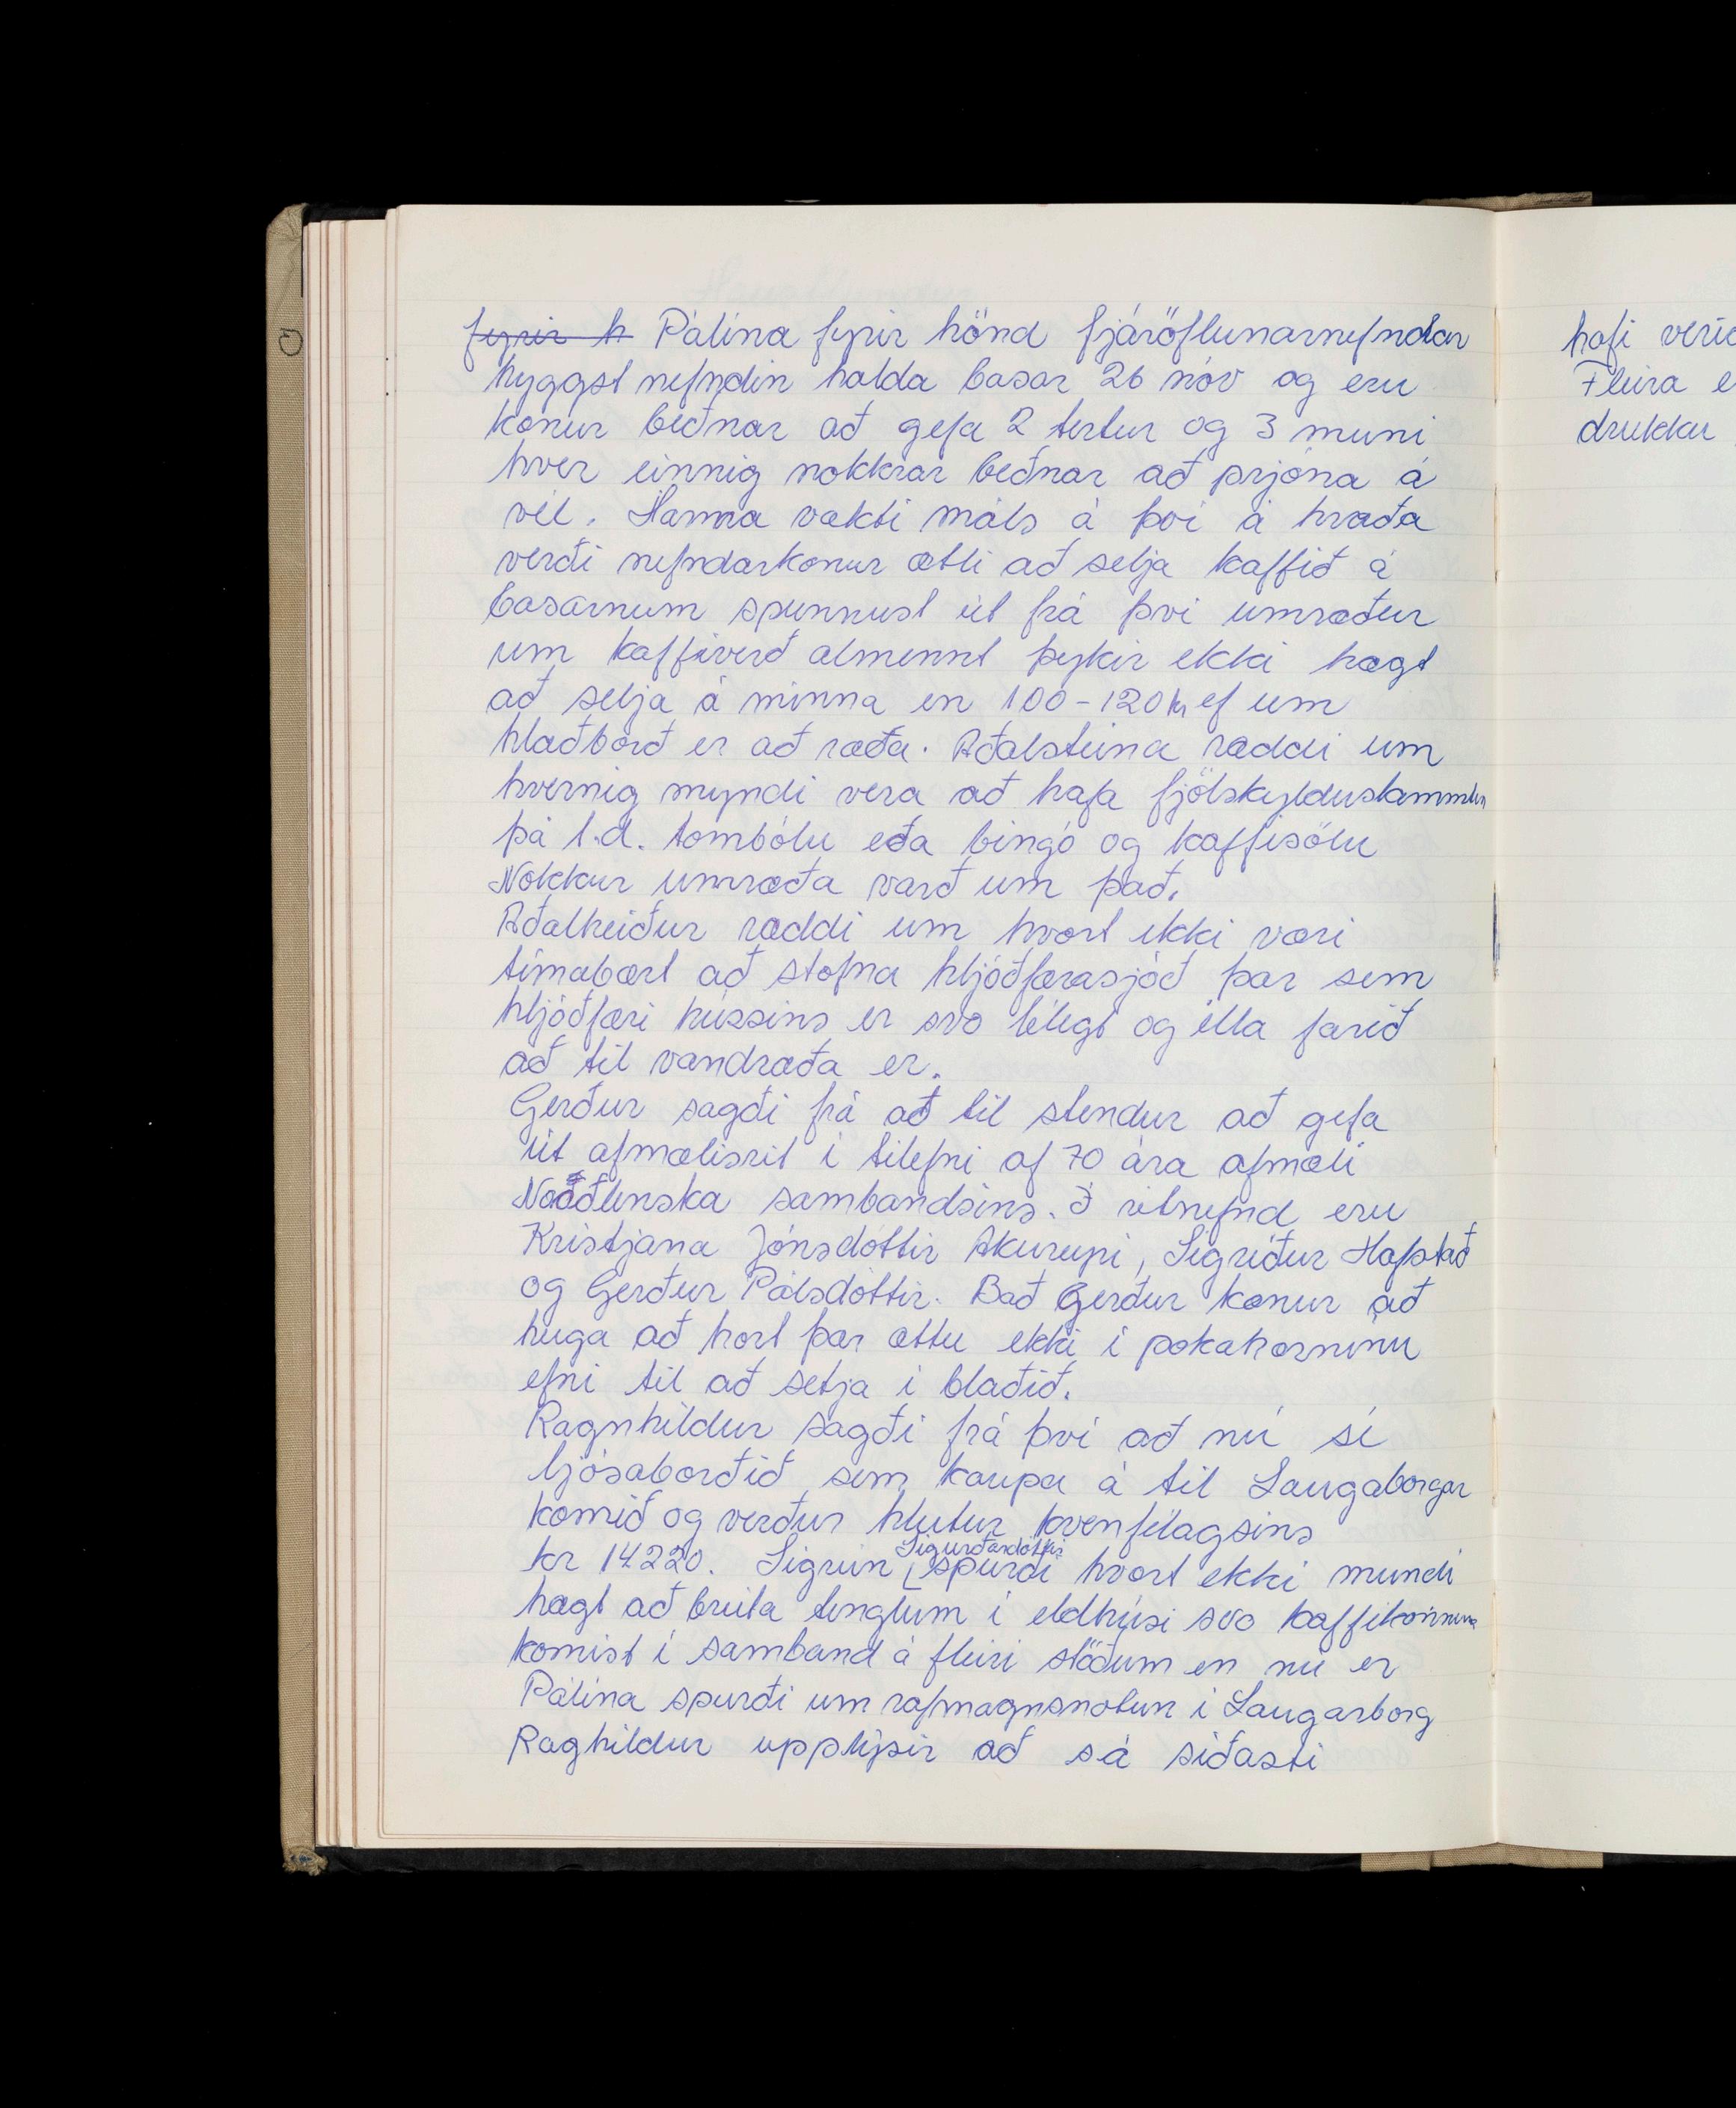 fyrir h Pálína fyrir hönd fjáröflunarnefndar
hyggst nefndin halda basar 26 nóv og eru
konur beðnar að gefa 2 tertur og 3 muni
hver einnig nokkrar beðnar að prjóna á
vél. Hanna vakti máls á því á hvaða
verði nefndarkonur ætli að selja kaffið á
basarnum spunnust út frá því umræður
um kaffiverð almennt þykir ekki hægt
að selja á minna en 100-120 kr ef um
hlaðborð er að ræða. Aðalsteina ræddi um
hvernig myndi vera að hafa fjölskylduskammtun
þá t.d. tombólu eða bingó og kaffisölu
Nokkur umræða varð um það.
Aðalheiður ræddi um hvort ekki væri
tímabært að stofna hljóðfærasjóð þar sem
hljóðfæri hússins er svo lélegt og illa farið
að til vandræða er.
Gerður sagði frá að til stendur að gefa
út afmælisrit í tilefni af 70 ára afmæli
Norðlenska sambandsins. Í ritnefnd eru
Kristjana Jónsdóttir Akureyri, Sigríður Hafstað
og Gerður Pálsdóttir. Bað Gerður konur að
huga að hort þær ættu ekki í pokahorninu
efni til að setja í blaðið.
Ragnhildur sagði frá því að nú sé
ljósaborðið sem kaupa á til Laugaborgar
komið og verður hlutur kvenfélagsins
kr 14220. Sigrún Sigurðardóttir spurði hvort ekki mundi
hægt að breita tenglum í eldhúsi svo kaffikönnur
komist í samband á fleiri stöðum en nú er
Pálína spurði um rafmagnsnotun í Laugarborg
Raghildur upplýsir að sá síðasti
hafi verið
Fleira e
drukku